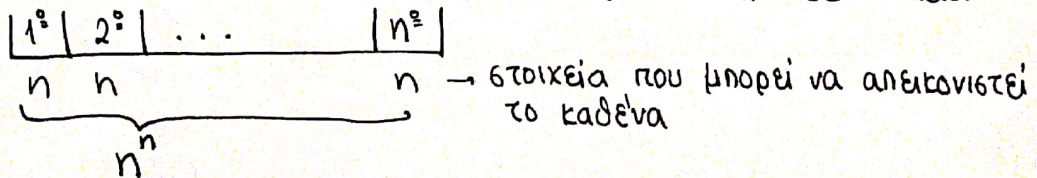 1º 2º ... nº
n n n → στοιχεία που μπορεί να απεικονιστεί
το καθένα
nⁿ